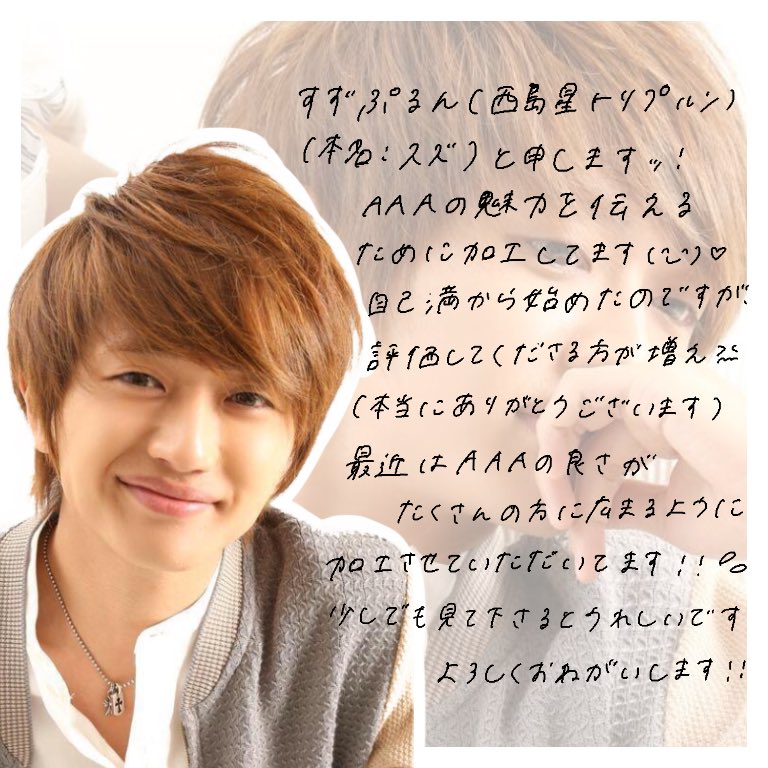 すずぷるん(西島星トリプルン)
(本名:スズ)と申しますッ!
AAAの魅力を伝える
ために加工してます(˙˘˙)♡
自己満から始めたのですが
評価してくださる方が増え
(本当にありがとうございます)
最近はAAAの良さが
たくさんの方に広まるように
加工させていただいてます!!
少しでも見て下さるとうれしいです
よろしくおねがいします!!